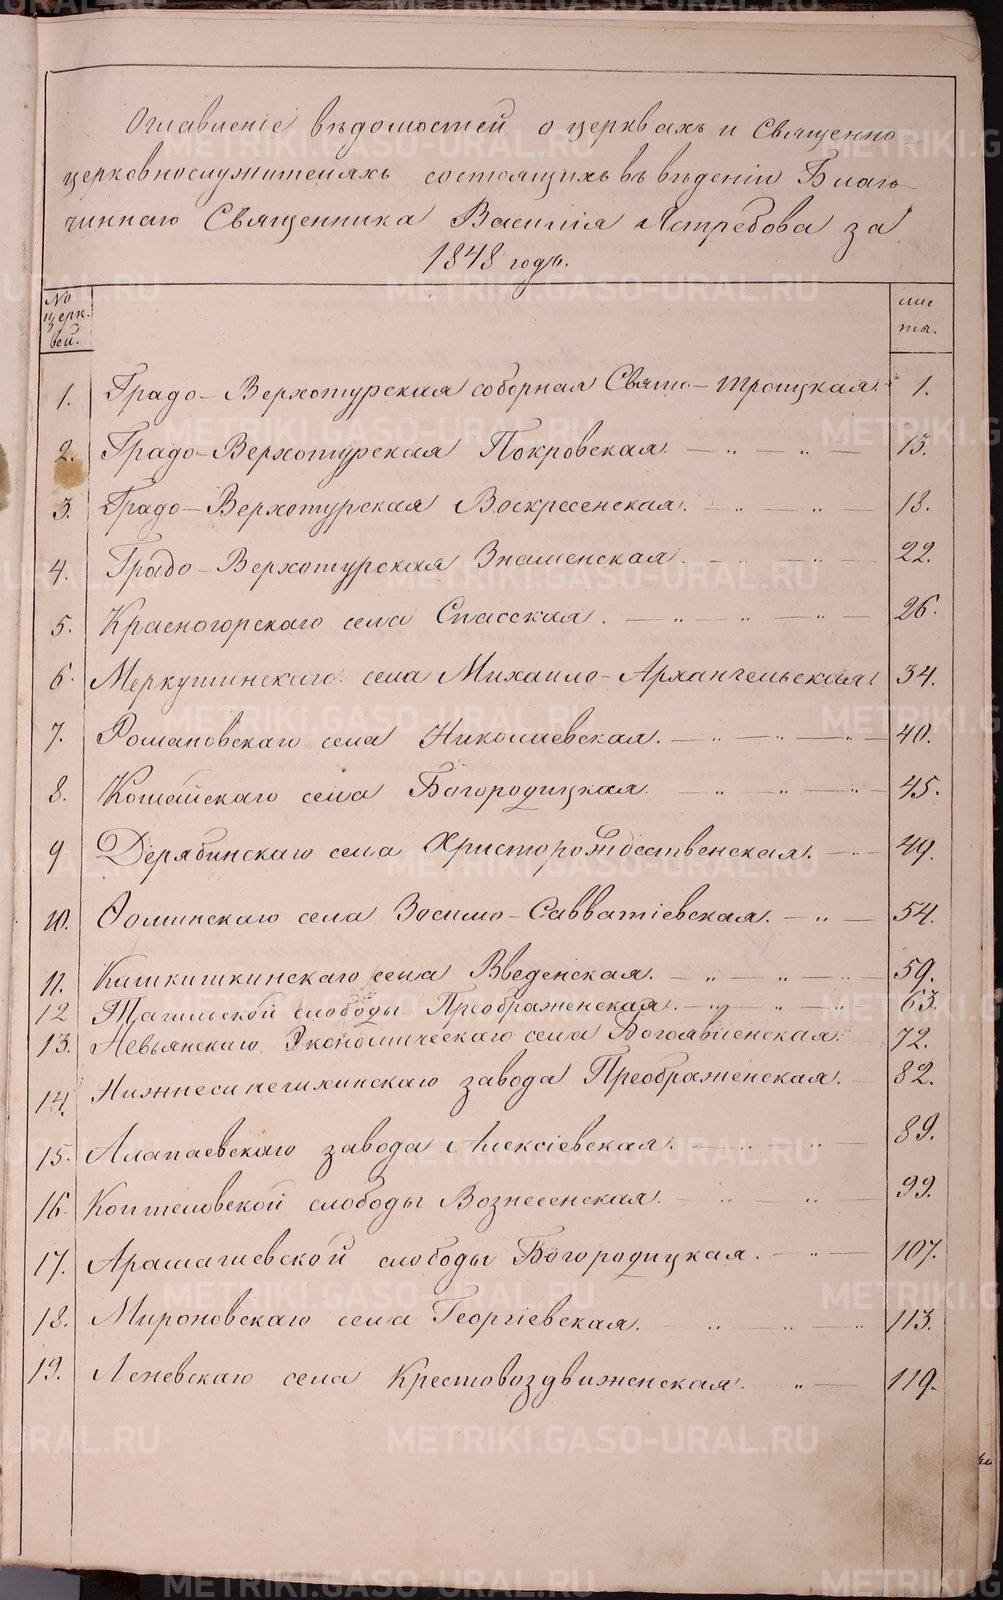 Оглавленіе вѣдомостей о церквахъ и Священно
церковнослужителяхъ состоящихъ въ вѣденіи Благо
чиннаго Священника Василія Ястребова за
1848 годъ.
№ церк- вей. листы.
1. Градо-Верхотурская соборная Свято-Троицкая. 1.
2. Градо-Верхотурская Покровская. — „ — „ — 13.
3. Градо-Верхотурская Воскресенская. — „ — „ — 18.
4. Градо-Верхотурская Знаменская. — „ — „ — 22.
5. Красногорскаго села Спасская. — „ — „ — „ — 26.
6. Меркушинскаго села Михаило-Архангельская 34.
7. Романовскаго села Николаевская. — „ — „ — „ — 40.
8. Кошайскаго села Богородицкая. — „ — „ — „ — 45.
9 Дерябинскаго села Христорождественская. — „ — 49.
10. Фоминскаго села Зосимо-Савватіевская. — „ — 54.
11. села Введенская. — „ — „ — „ 59.
12 Тагильской слободы Преображенская. — „ — „ — „ 63.
13. Невьянскаго Экономическаго села Богоявленская. 72.
14. Нижнесинячихинскаго завода Преображенская. 82.
15. Алапаевскаго завода Алексіевская. — „ — „ — 89.
16. Коптеловской слободы Вознесенская. — „ — „ — 99.
17. Арамашевской слободы Богородицкая. — „ — 107.
18. Мироновскаго села Георгіевская. — „ — „ — „ 113.
19. Леневскаго села Крестовоздвиженская. „ — 119.
METRIKI.GASO-URAL.RU